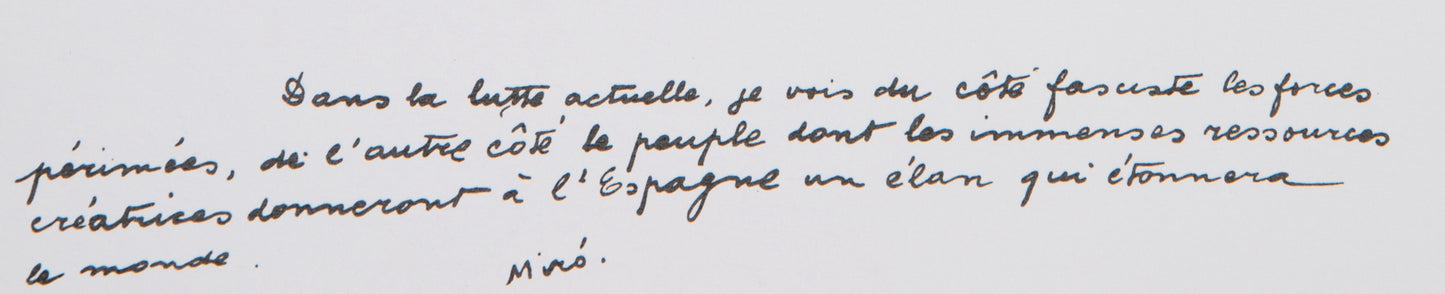 Dans la lutte actuelle, je vois du côté fasciste les forces
périmées, de l'autre côté le peuple dont les immenses ressources
créatrices donneront à l'Espagne un élan qui étonnera
le monde.
Miró.